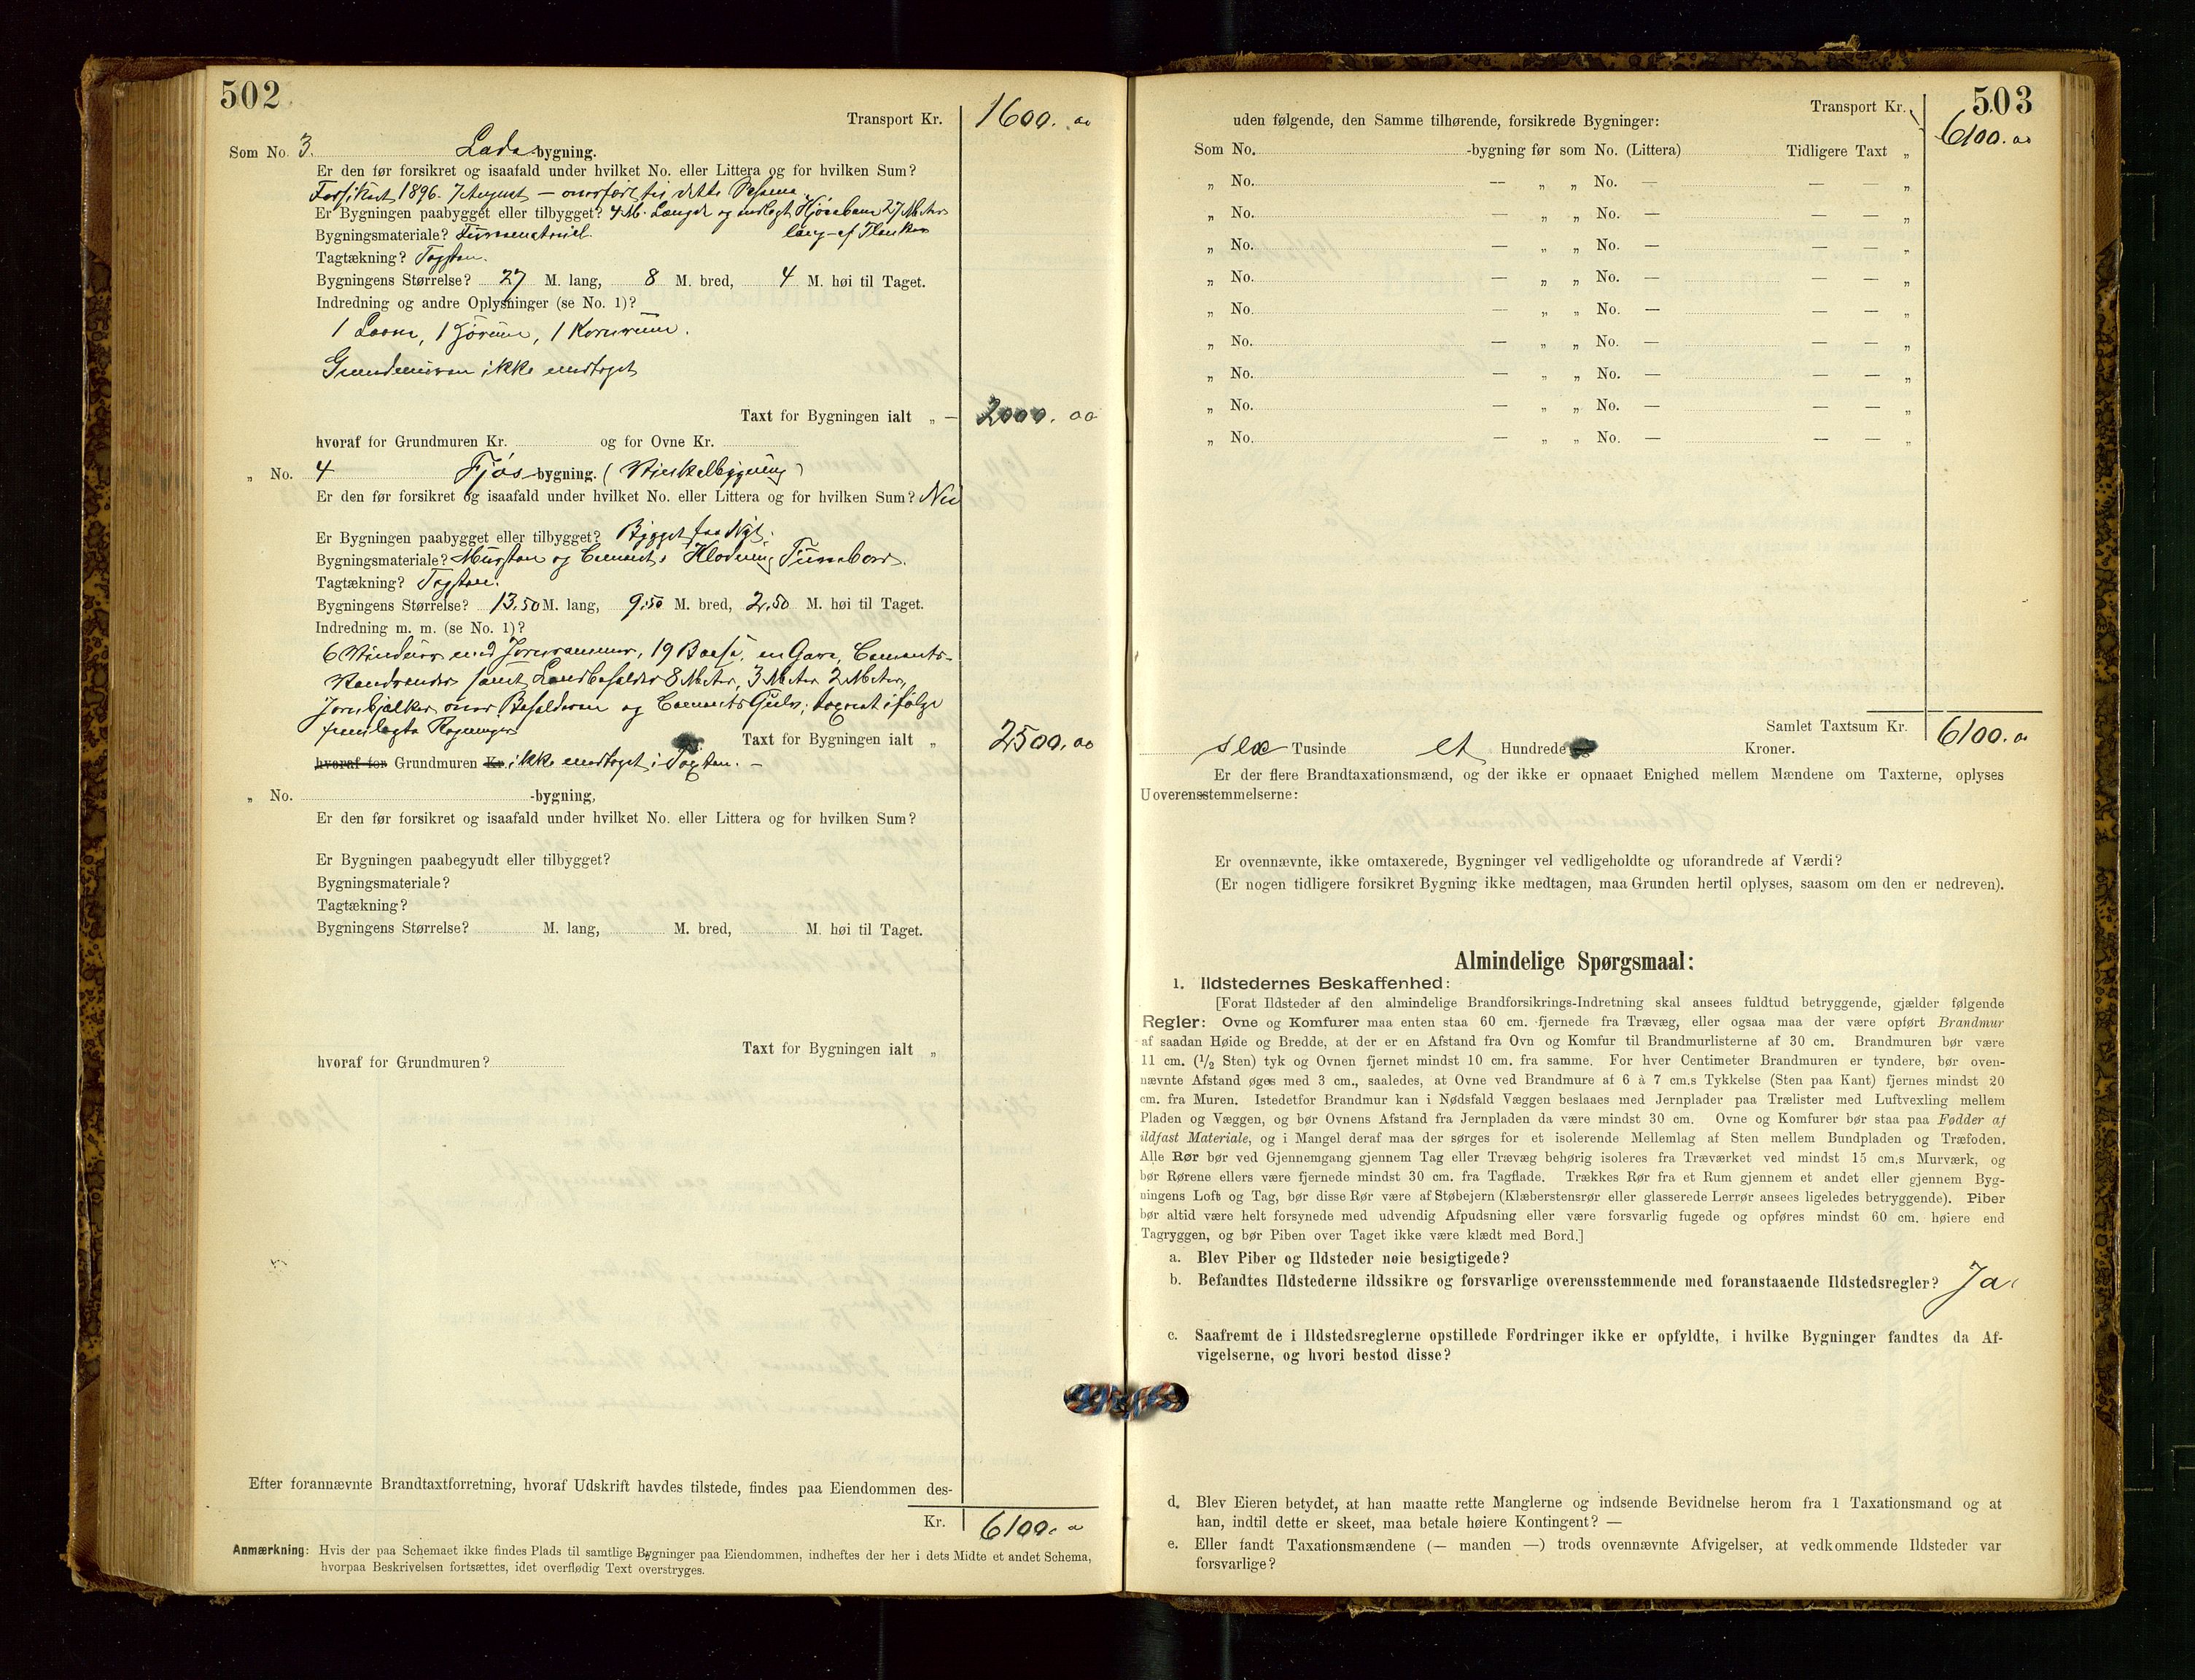 502
Transport Kr. 1600. 00
Som No. 3. Ladebygning.
Er den før forsikret og isaafald under hvilket No. eller Littera og for hvilken Sum?
Forsikret 1896. 7 August – overført til dette Schema.
Er Bygningen paabygget eller tilbygget? 4 M. Længde og Kjørebane 27 Meter
Bygningsmateriale? lang – af Planker
Tagtækning? Tagsten.
Bygningens Størrelse? 27 M. lang, 8 M. bred, 4 M. høi til Taget.
Indredning og andre Oplysninger (se No. 1)?
1 Laave, 1 Førum, 1 Kornrum.
Grundmuren ikke medtaget
Taxt for Bygningen ialt „ — 2000. 00
hvoraf for Grundmuren Kr. og for Ovne Kr.
„ No. 4 Fjós-bygning. (Vinkelbygning)
Er den før forsikret og isaafald under hvilket No. eller Littera og for hvilken Sum? Nei
Er Bygningen paabygget eller tilbygget? Bygget paa Nyt.
Bygningsmateriale? Mursten og Cement,
Tagtækning? Tagsten.
Bygningens Størrelse? 13.50 M. lang, 9.50 M. bred, 2.50 M. høi til Taget.
Indredning m. m. (se No. 1)?
6 Vinduer med Jernrammer, 19 Baase, en Gare, Cements-
Vandrender samt Landbeholder 8 Meter, 3 Meter 2 Meter,
Jernbjælker over Beholderen og Cements Gulv; taxeret ifølge
fremlagte Regninger
Taxt for Bygningen ialt „ 2500. 00
hvoraf for Grundmuren Kr. ikke medtaget i Taxten. –
„ No. -bygning,
Er den før forsikret og isaafald under hvilket No. eller Littera og for hvilken Sum?
Er Bygningen paabegyndt eller tilbygget?
Bygningsmateriale?
Tagtækning?
Bygningens Størrelse? M. lang, M. bred, M. høi til Taget.
Taxt for Bygningen ialt „
hvoraf for Grundmuren?
Efter forannævnte Brandtaxtforretning, hvoraf Udskrift havdes tilstede, findes paa Eiendommen des-
Kr. 6100. 00
Anmærkning: Hvis der paa Schemaet ikke findes Plads til samtlige Bygninger paa Eiendommen, indheftes der her i dets Midte et andet Schema,
hvorpaa Beskrivelsen fortsættes, idet overflødig Text overstryges.
503
Transport Kr. 6100. 00
uden følgende, den Samme tilhørende, forsikrede Bygninger:
Som No. -bygning før som No. (Littera) Tidligere Taxt „
„ No. — „ „ No. — — — „
„ No. — „ „ No. — — — „
„ No. — „ „ No. — — — „
„ No. — „ „ No. — — — „
„ No. — „ „ No. — — — „
„ No. — „ „ No. — — — „
„ No. — „ „ No. — — — „
„ No. — „ „ No. — — — „
„ No. — „ „ No. — — — „
Samlet Taxtsum Kr. 6100. 00
sex Tusinde et Hundrede Kroner.
Er der flere Brandtaxationsmænd, og der ikke er opnaaet Enighed mellem Mændene om Taxterne, oplyses
Uoverensstemmelserne:
Er ovennævnte, ikke omtaxerede, Bygninger vel vedligeholdte og uforandrede af Værdi?
(Er nogen tidligere forsikret Bygning ikke medtagen, maa Grunden hertil oplyses, saasom om den er nedreven).
Almindelige Spørgsmaal:
1. Ildstedernes Beskaffenhed:
[Forat Ildsteder af den almindelige Brandforsikrings-Indretning skal ansees fuldtud betryggende, gjælder følgende
Regler: Ovne og Komfurer maa enten staa 60 cm. fjernede fra Trævæg, eller ogsaa maa der være opført Brandmur
af saadan Høide og Bredde, at der er en Afstand fra Ovn og Komfur til Brandmurlisterne af 30 cm. Brandmuren bør være
11 cm. (1/2 Sten) tyk og Ovnen fjernet mindst 10 cm. fra samme. For hver Centimeter Brandmuren er tyndere, bør oven-
nævnte Afstand øges med 3 cm., saaledes, at Ovne ved Brandmure af 6 à 7 cm.s Tykkelse (Sten paa Kant) fjernes mindst 20
cm. fra Muren. Istedetfor Brandmur kan i Nødsfald Væggen beslaaes med Jernplader paa Trælister med Luftvexling mellem
Pladen og Væggen, og bør Ovnens Afstand fra Jernpladen da være mindst 30 cm. Ovne og Komfurer bør staa paa Fødder af
ildfast Materiale, og i Mangel deraf maa der sørges for et isolerende Mellemlag af Sten mellem Bundpladen og Træfoden.
Alle Rør bør ved Gjennemgang gjennem Tag eller Trævæg behørig isoleres fra Træværket ved mindst 15 cm.s Murværk, og
bør Rørene ellers være fjernede mindst 30 cm. fra Tagflade. Trækkes Rør fra et Rum gjennem et andet eller gjennem Byg-
ningens Loft og Tag, bør disse Rør være af Støbejern (Klæberstensrør eller glasserede Lerrør ansees ligeledes betryggende). Piber
bør altid være helt forsynede med udvendig Afpudsning eller være forsvarlig fugede og opføres mindst 60 cm. høiere end
Tagryggen, og bør Piben over Taget ikke være klædt med Bord.]
a. Blev Piber og Ildsteder nøie besigtigede?
b. Befandtes Ildstederne ildssikre og forsvarlige overensstemmende med foranstaaende Ildstedsregler? Ja
c. Saafremt de i Ildstedsreglerne opstillede Fordringer ikke er opfyldte, i hvilke Bygninger fandtes da Af-
vigelserne, og hvori bestod disse?
d. Blev Eieren betydet, at han maatte rette Manglerne og indsende Bevidnelse herom fra 1 Taxationsmand og at
han, indtil dette er skeet, maa betale høiere Kontingent? —
e. Eller fandt Taxationsmændene (— manden —) trods ovennævnte Afvigelser, at vedkommende Ildsteder var
forsvarlige?